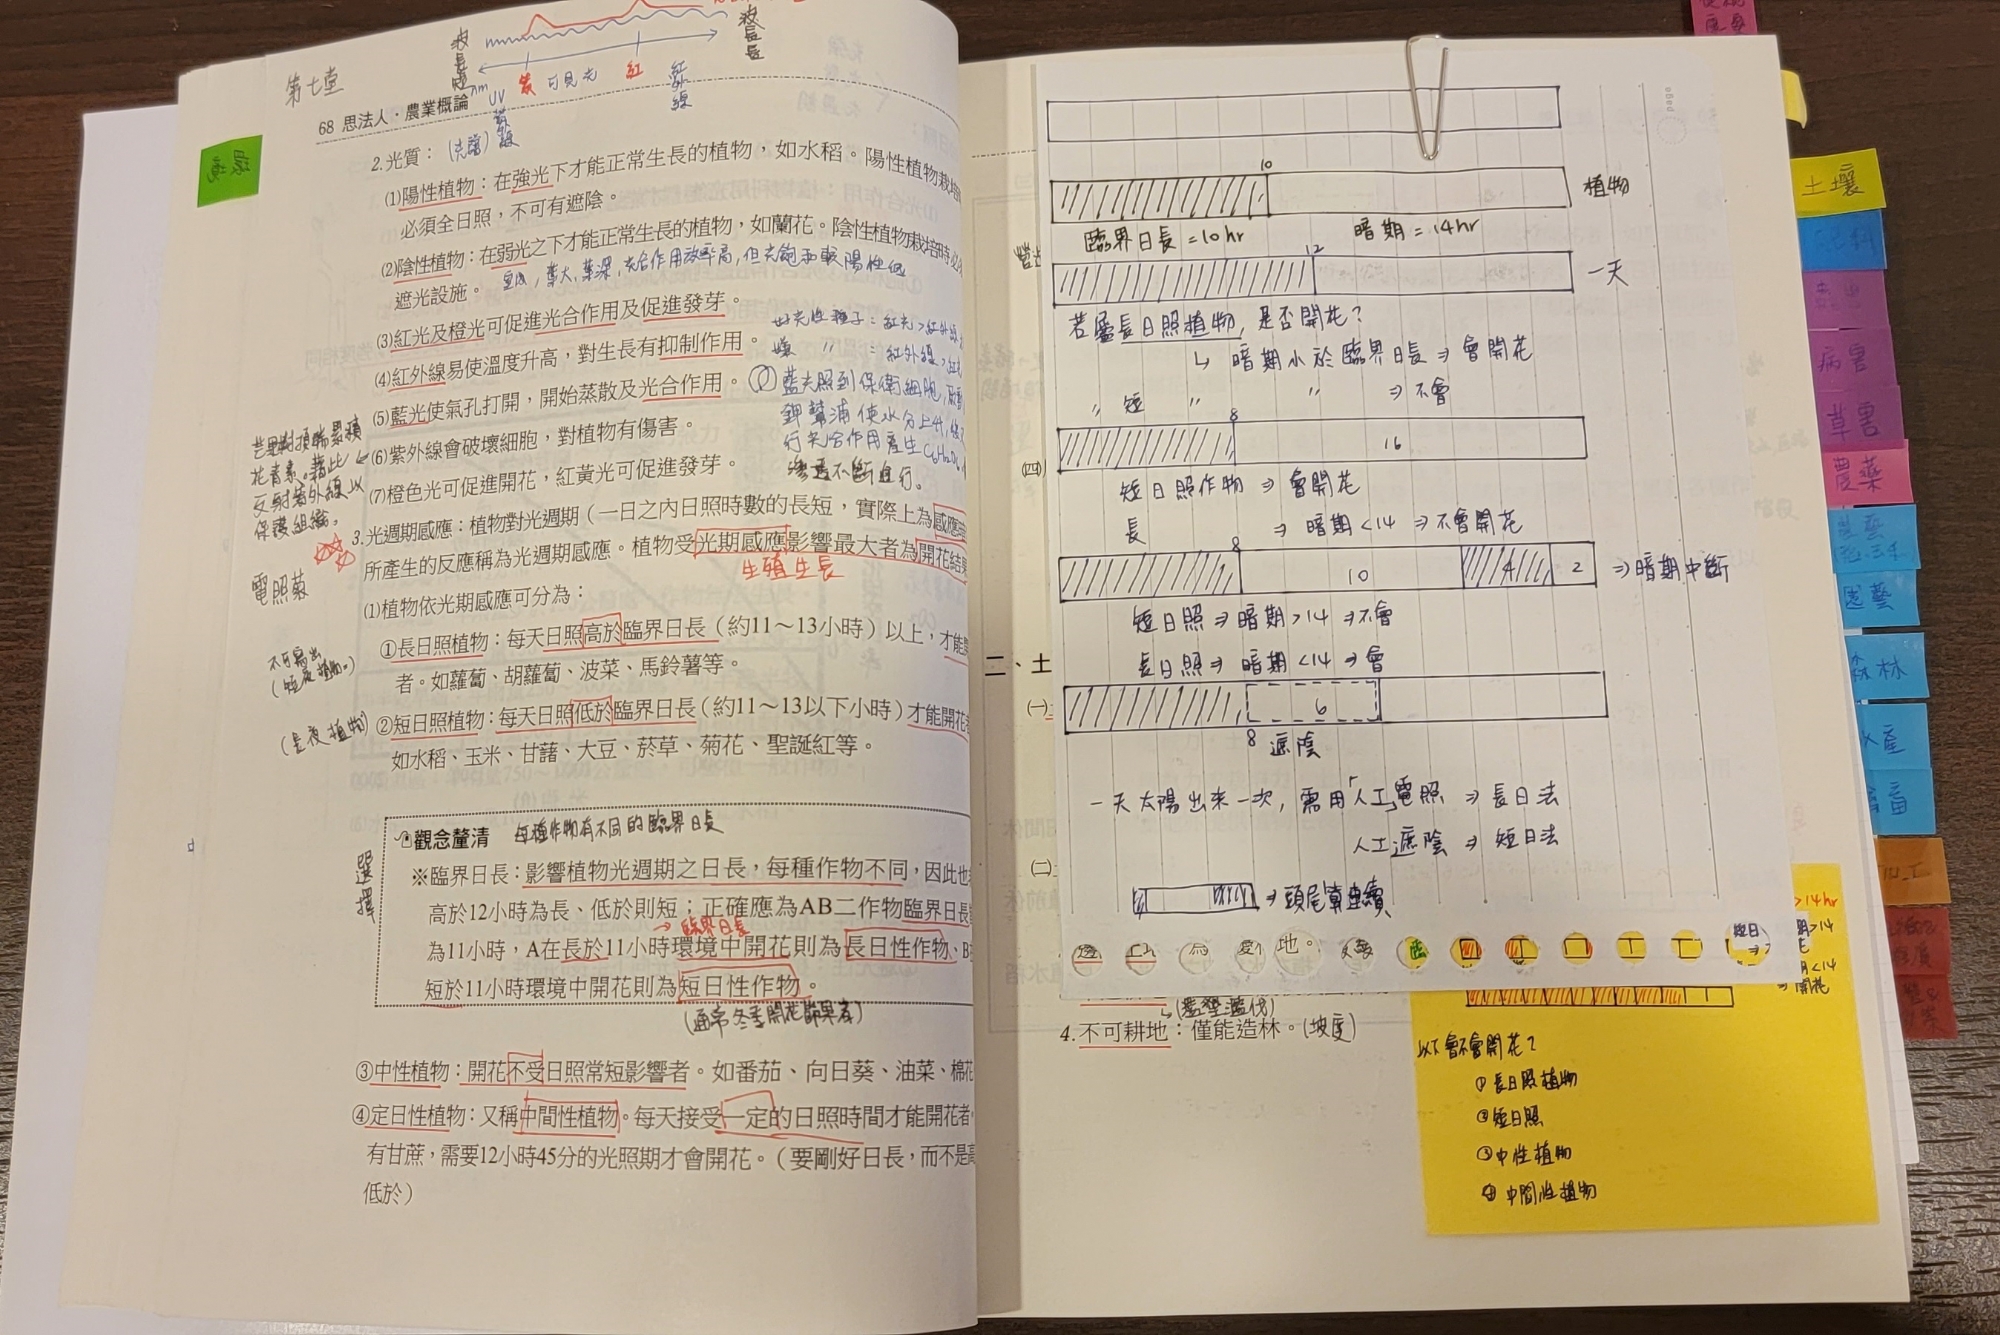 第七堂
波長短
波長長
nm
UV
紫
可見光
紅
紅外線
68 思法人・農業概論
環境
2.光質：(光譜)
(1)陽性植物：在強光下才能正常生長的植物，如水稻。陽性植物栽培
必須全日照，不可有遮陰。
(2)陰性植物：在弱光之下才能正常生長的植物，如蘭花。陰性植物栽培時
葉大，葉深，光合作用效率高，但光飽和較陽性低
遮光設施。
(3)紅光及橙光可促進光合作用及促進發芽。
好光性種子：紅光>紅外線
嫌 〃 ：紅外線>紅
(4)紅外線易使溫度升高，對生長有抑制作用。
(5)藍光使氣孔打開，開始蒸散及光合作用。
藍光照到保衛細胞
鉀幫浦使水分上升
行光合作用產生C₆H₁₂O₆
滲透不斷進行。
(6)紫外線會破壞細胞，對植物有傷害。
花青素。藉此
反射紫外線以
保護組織。
(7)橙色光可促進開花，紅黃光可促進發芽。
3.光週期感應：植物對光週期（一日之內日照時數的長短，實際上為感應
所產生的反應稱為光週期感應。植物受光期感應影響最大者為開花結
生殖生長
電照菊
(1)植物依光期感應可分為：
①長日照植物：每天日照高於臨界日長（約11～13小時）以上，才能
者。如蘿蔔、胡蘿蔔、波菜、馬鈴薯等。
不可寫出
(短夜植物。)
②短日照植物：每天日照低於臨界日長（約11～13以下小時）才能開花
(長夜植物)
如水稻、玉米、甘藷、大豆、菸草、菊花、聖誕紅等。
觀念釐清 每種作物有不同的臨界日長
選擇
※臨界日長：影響植物光週期之日長，每種作物不同，因此也
高於12小時為長、低於則短；正確應為AB二作物臨界日長
→臨界日長
為11小時，A在長於11小時環境中開花則為長日性作物、B
短於11小時環境中開花則為短日性作物。
(通常冬季開花節果者)
③中性植物：開花不受日照常短影響者。如番茄、向日葵、油菜、棉花
④定日性植物：又稱中間性植物。每天接受一定的日照時間才能開花者
有甘蔗，需要12小時45分的光照期才會開花。（要剛好日長，而不是
低於）
page
10
植物
臨界日長=10hr
暗期=14hr
12
一天
若屬長日照植物，是否開花？
↳ 暗期小於臨界日長⇒會開花
〃 短 〃 〃 ⇒不會
8
16
短日照作物⇒會開花
長 ⇒暗期<14⇒不會開花
8
10
4
2
⇒暗期中斷
短日照⇒暗期>14⇒不會
長日照⇒暗期<14⇒會
6
8 遮陰
一天太陽出來一次，需用「人工」電照⇒長日法
人工遮陰⇒短日法
⇒頭尾算連續
二、土
(一)
(二)
(四)
4.不可耕地：僅能造林。(坡度)
>14hr
短日
>14
<14
⇒開花
以下會不會開花？
①長日照植物
②短日照
③中性植物
④中間性植物
土壤
肥料
病害
草害
農藥
園藝
森林
水產